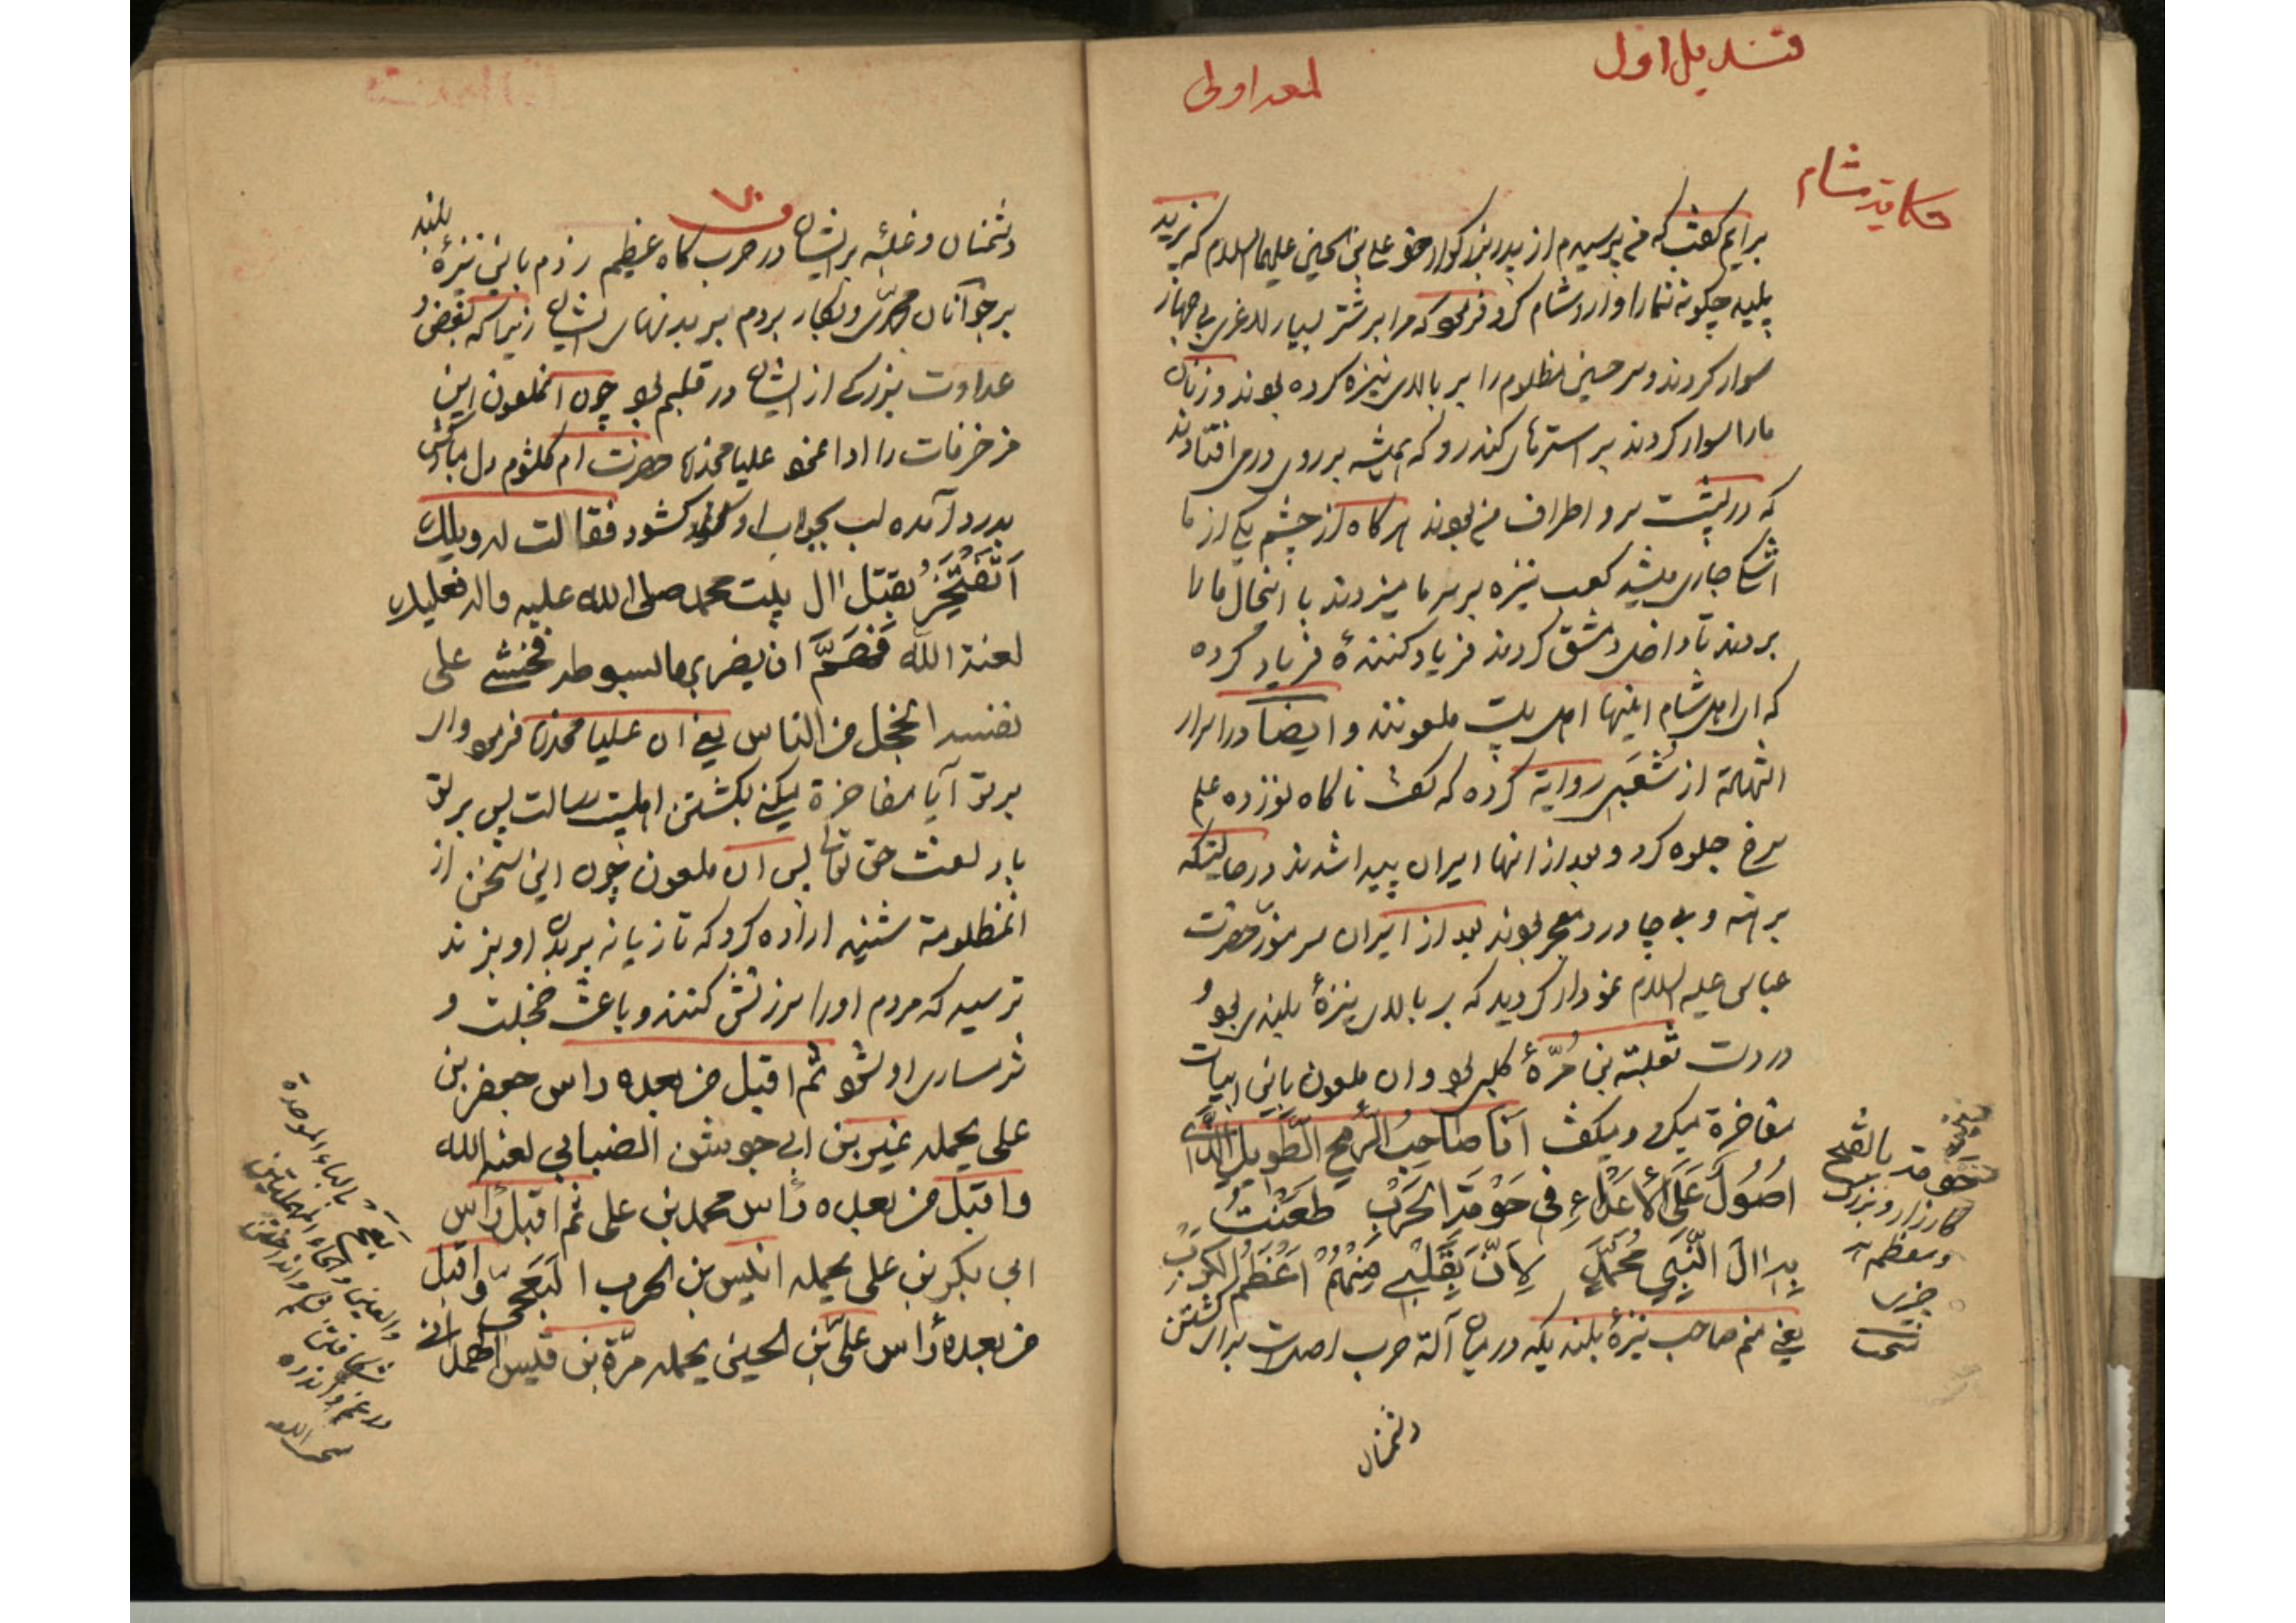 قندیل اول
لمعه اولی
حکایة شام
برایم گفت که من پرسیدم از پدر بزرگوار خود علی بن الحسین علیهما السلام که یزید
پلید چگونه شما را وارد شام کرد فرمود که مرا بر شتر بسیار لاغری بی جهاز
سوار کردند و سر حسین مظلوم را بر بالای نیزه کرده بودند و زنان
ما را سوار کردند بر استرهای کندرو که همیشه بر روی در می افتادند
که در پشت سر و اطراف من بودند هرگاه از چشم یکی از ما
اشک جاری میشد کعب نیزه بر سر ما میزدند با اینحال ما را
بردند تا داخل دمشق کردند فریاد کنندهٔ فریاد کرده
که ای اهل شام اینها اهل بیت ملعونند و ایضا در اسرار
الشهادة از شعبی روایة کرده که گفت ناگاه نوزده علم
سرخ جلوه کرد و بعد از انها اسیران پیدا شدند در حالیتکه
برهنه و بی چادر و معجر بودند بعد از اسیران سر منور حضرت
عباس علیه السلام نمودار گردید که بر بالای نیزهٔ بلندی بود و
در دست ثعلبة بن مُرّهٔ کلبی بود و ان ملعون باین ابیات
مفاخرة میکرد و میگفت اَنَا صَاحِبُ الرُّمحِ الطَّویلِ الَّذی
اَصُولُ عَلَی الأَعداءِ فی حَوْمَةِ الحَرْبِ طَعَنْتُ
بِهِ الَ النَّبِیِّ مُحَمَّدٍ لِاَنَّ بِقَلْبی مِنْهُمْ اَعْظَمُ الکَرْبِ
یعنی منم صاحب نیزهٔ بلند یکه در میان آلة حرب اصلات برای کشتن
دشمنان
حَومة بالفتح
کارزار و بزرگ
و معظم هر
چیزی
دشمنان و غلبه بر ایشان در حرب گاه عظیم زدم باین نیزهٔ بلند
بر جوانان محمدی و بکار بردم بر بدنهای ایشان زیرا که بغض و
عداوت بزرگی از ایشان در قلبم بود چون انملعون این
مزخرفات را ادا نمود علیا مخدره حضرت ام کلثوم دل مبارکش
بدرد آمده لب بجواب او گشود فقالت له ویلک
اَتَفْتَخِرُ بقتل ال بیت محمد صلی الله علیه واله فعلیک
لعنة الله فَهَمَّ ان یضربها بسوطه فخشی علی
نفسه الخجل من الناس یعنی ان علیا مخدره فرمود وای
بر تو آیا مفاخرة میکنی بکشتن اهلبیت رسالت پس بر تو
باد لعنت حق تعالی پس ان ملعون چون این سخن از
انمظلومة شنید اراده کرد که تازیانه بر بدن او بزند
ترسید که مردم او را سرزنش کنند و باعث خجلت و
شرمساری او شود ثم اقبل من بعده راس جعفر بن
علی یحمله نمیر بن ابی جوشن الضبابی لعنه الله
واقبل من بعده رأس محمد بن علی ثم اقبل رأس
ابی بکر بن علی یحمله انیس بن الحرب البَعَجی واقبل
من بعده رأس علی بن الحسین یحمله مرّة بن قیس الهمدانی
بَعَجَ بالباء الموحدة
والعین والجاء المهملتین